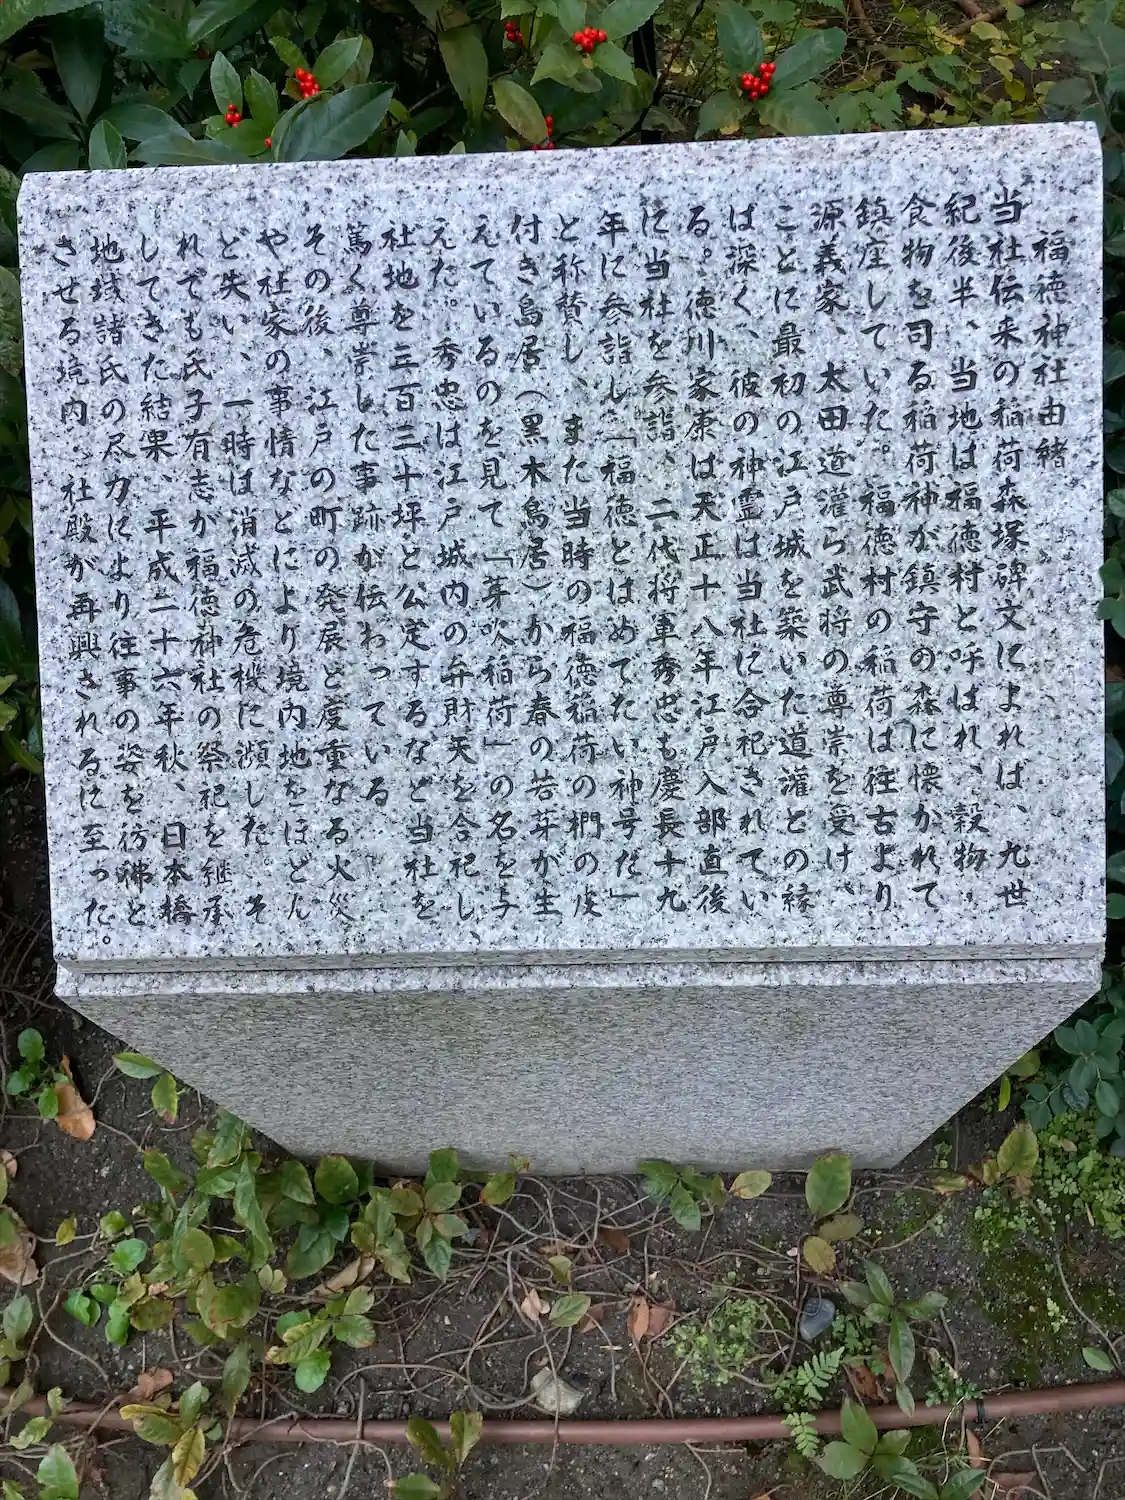 福徳神社由緒
当社伝来の稲荷森塚碑文によれば、九世
紀後半、当地は福徳村と呼ばれ、穀物・
食物を司る稲荷神が鎮守の森に懐かれて
鎮座していた。福徳村の稲荷は往古より
源義家、太田道灌ら武将の尊崇を受け、
ことに最初の江戸城を築いた道灌との縁
は深く、彼の神霊は当社に合祀されてい
る。徳川家康は天正十八年江戸入部直後
に当社を参詣、二代将軍秀忠も慶長十九
年に参詣し「福徳とはめでたい神号だ」
と称賛し、また当時の福徳稲荷の椚の皮
付き鳥居（黒木鳥居）から春の若芽が生
えているのを見て「芽吹稲荷」の名を与
えた。秀忠は江戸城内の弁財天を合祀し、
社地を三百三十坪と公定するなど当社を
篤く尊崇した事跡が伝わっている
その後、江戸の町の発展と度重なる火災
や社家の事情などにより境内地をほとん
ど失い、一時は消滅の危機に瀕した。そ
れでも氏子有志が福徳神社の祭祀を継承
してきた結果、平成二十六年秋、日本橋
地域諸氏の尽力により往事の姿を彷彿と
させる境内、社殿が再興されるに至った。